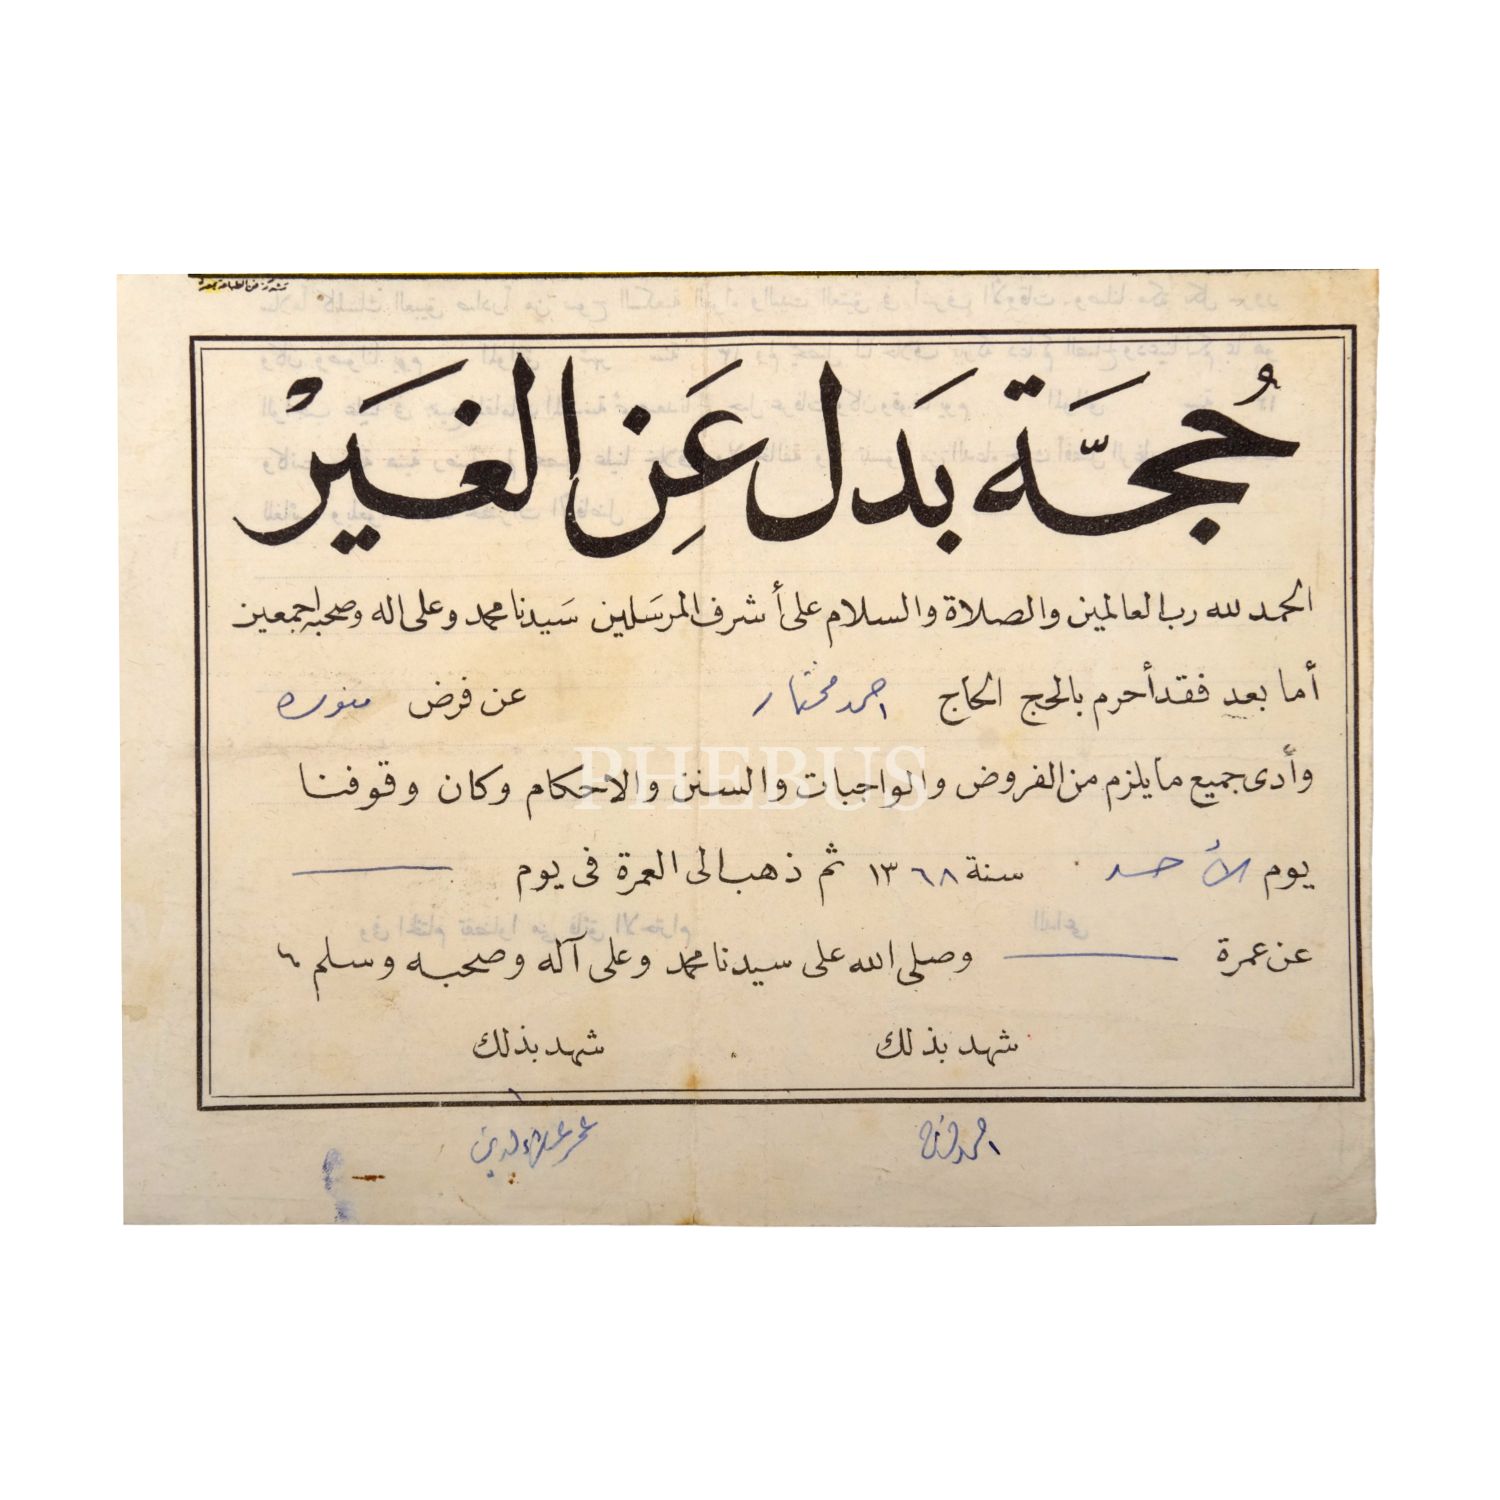 حُججَّة بَدَل عَنِ الغَيَرْ
الحمد لله رب العالمين والصلاة والسلام على أشرف المرسَلين سَيدنا محمد وعلى اله وصحبه اجمعين
أما بعد فقد أحرم بالحج الحاج احمد مختار عن فرض منوره
وأدى جميع ما يلزم من الفروض والواجبات والسنن والاحكام وكان وقوفنا
PHEBUS
يوم الأحد سنة ١٣٦٨ ثم ذهب الى العمرة فى يوم
عن عمرة وصلى الله على سيدنا محمد وعلى آله وصحبه وسلم
شهد بذلك شهد بذلك
احمد عمر علاء الدين